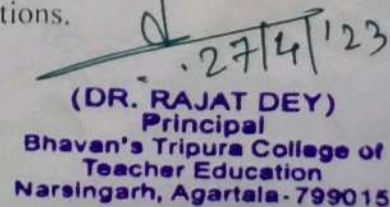 tions.
27/4/'23
(DR. RAJAT DEY)
Principal
Bhavan's Tripura College of
Teacher Education
Narsingarh, Agartala-799015